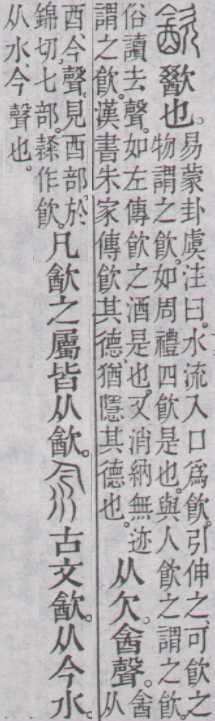 㱃歠也。易蒙卦虞注曰。水流入口爲飮。引伸之。可飮之
物謂之飮。如周禮四飮是也。與人飮之謂之飮。
俗讀去聲。如左傳飮之酒是也。又消納無迹
謂之飮。漢書朱家傳飮其德猶隱其德也。从欠酓聲。酓从
酉今聲。見酉部。於
錦切。七部。隷作飮。凡㱃之屬皆从㱃。𣲎古文㱃。从今水。
从水今聲也。